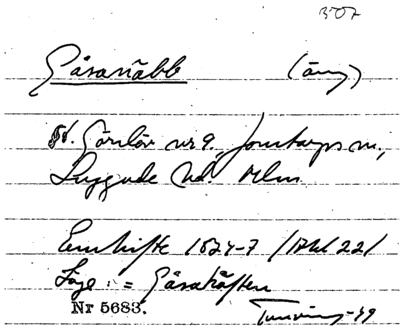 3507
Gåsanäbb (äng)
St. Görslöv nr 9, Jonstorps sn,
Luggude hd. Mlm.
Enskifte 1824-7 (Akt 22)
Läge: = Gåsakäften
Nr 5683. Tunving -49